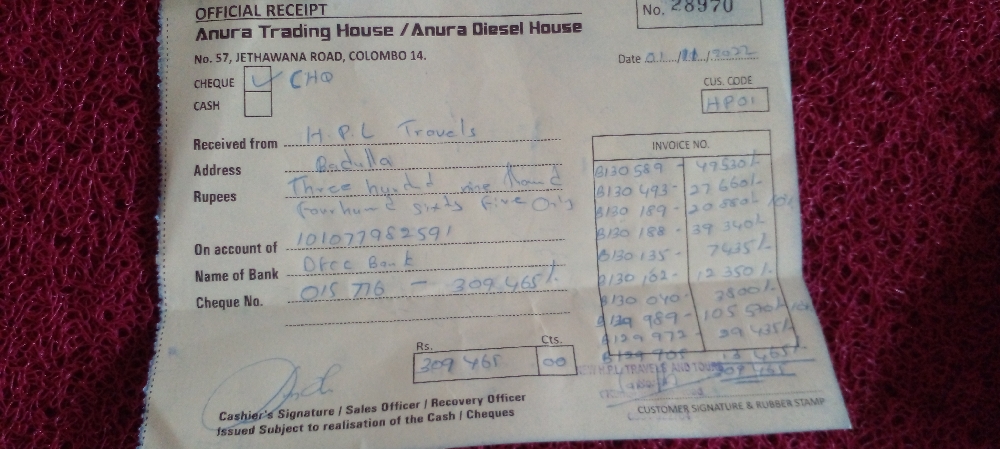 OFFICIAL RECEIPT
No. 28970
Anura Trading House / Anura Diesel House
No. 57, JETHAWANA ROAD, COLOMBO 14.
Date 01/11/2022
CHEQUE CHQ
CASH
CUS. CODE
HP01
Received from H.P.L Travels
Address Badulla
Rupees Three hundd nine
Five Only
On account of 101077982591
Name of Bank DFCC Bank
Cheque No. 015 776 - 309 465/.
INVOICE NO.
B130 589 - 49530/-
B130 493 - 27 660/-
B130 189 - 20 880/-
B130 188 - 39 340/-
B130 135 - 7435/-
B130 162 - 12 350/-
B130 040 - 3800/-
B129 989 - 105 570/-
B129 972 - 29 435/-
B129 908
309 465
Rs. Cts.
309 465 00
H.P.L. TRAVELS AND TOURS
Cashier's Signature / Sales Officer / Recovery Officer
Issued Subject to realisation of the Cash / Cheques
CUSTOMER SIGNATURE & RUBBER STAMP